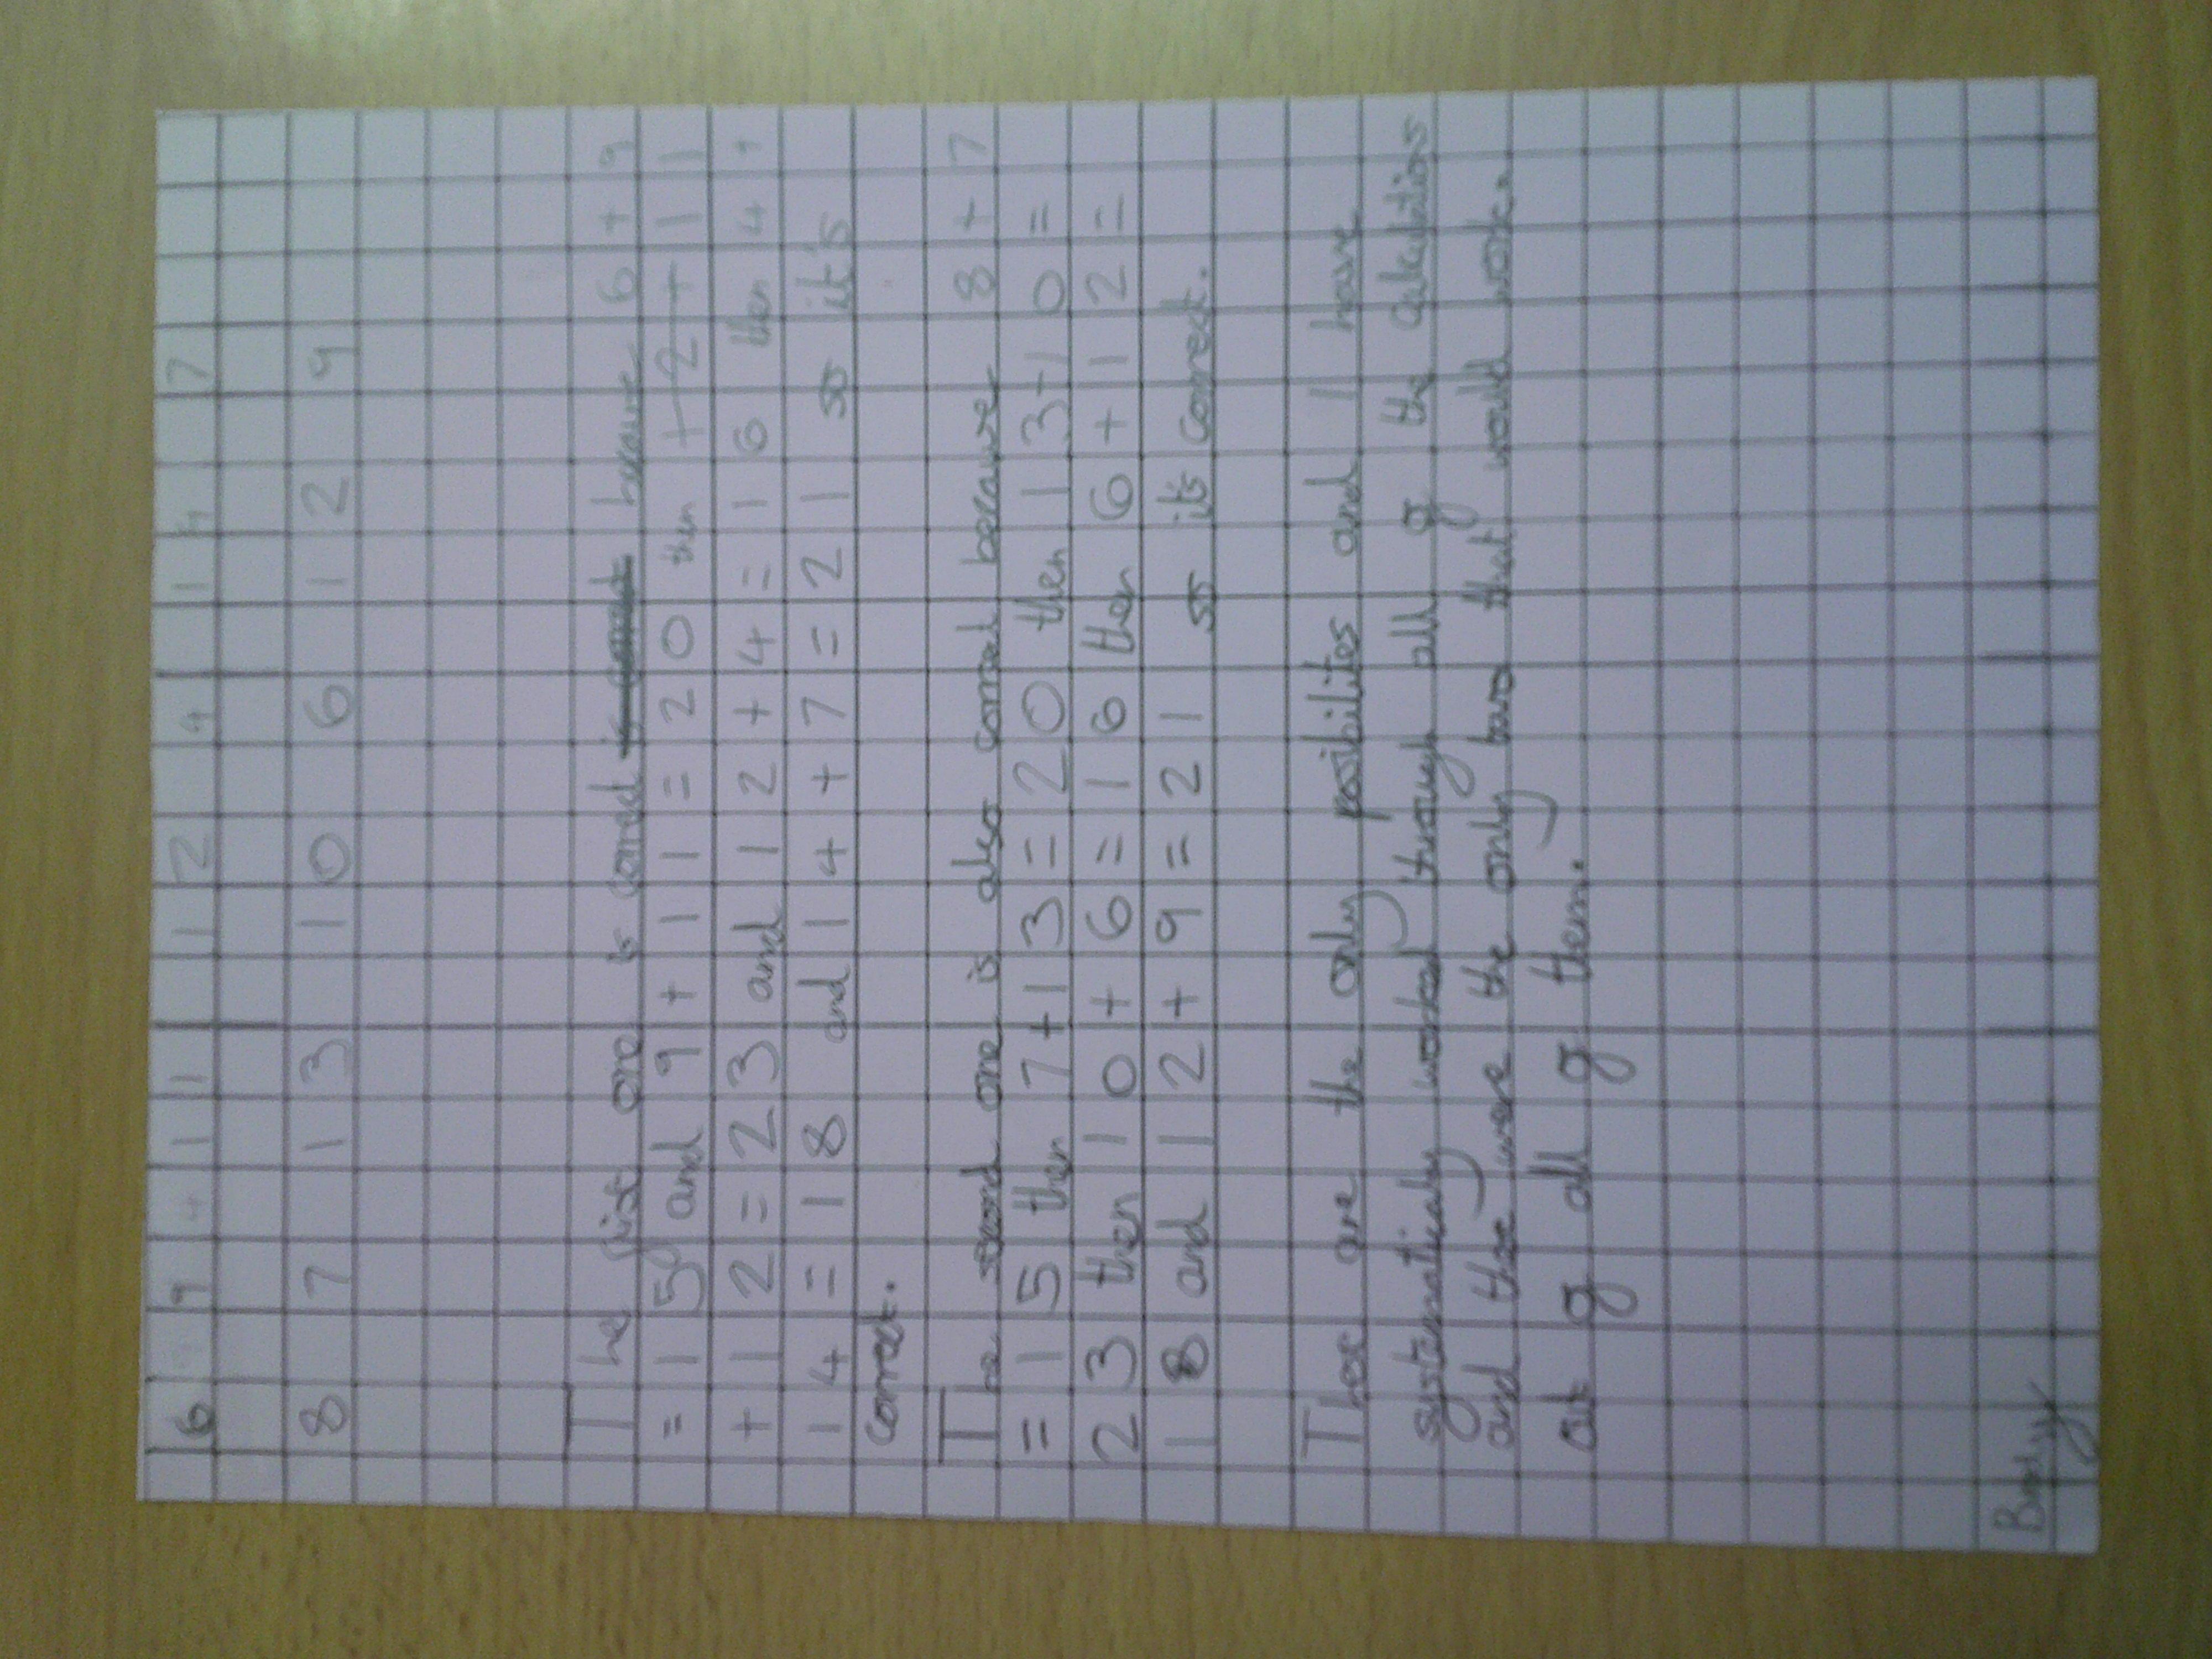 6 9 11 12 4 14 7
8 7 13 10 6 12 9
The fist one is correct because 6+9
=15 and 9+11=20 then 11
+12=23 and 12+4=16 then 4+
14=18 and 14+7=21 so it's
correct.
The second one is also correct because 8+7
=15 then 7+13=20 then 13+10=
23 then 10+6=16 then 6+12=
18 and 12+9=21 so it's correct.
Thes are the only posibilites and I have
systematically worked through all of the calculations
and these were the only two that would work
out of all of them.